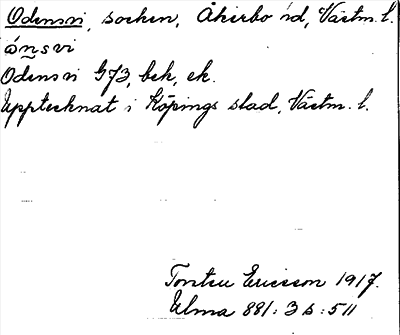 Odensvi, socken, Åkerbo hd, Västm. l.
ónsvi
Odensvi G73, bek, ek.
Upptecknat i Köpings stad, Västm. l.
Torsten Ericsson 1917.
Ulma 881:3 s:511